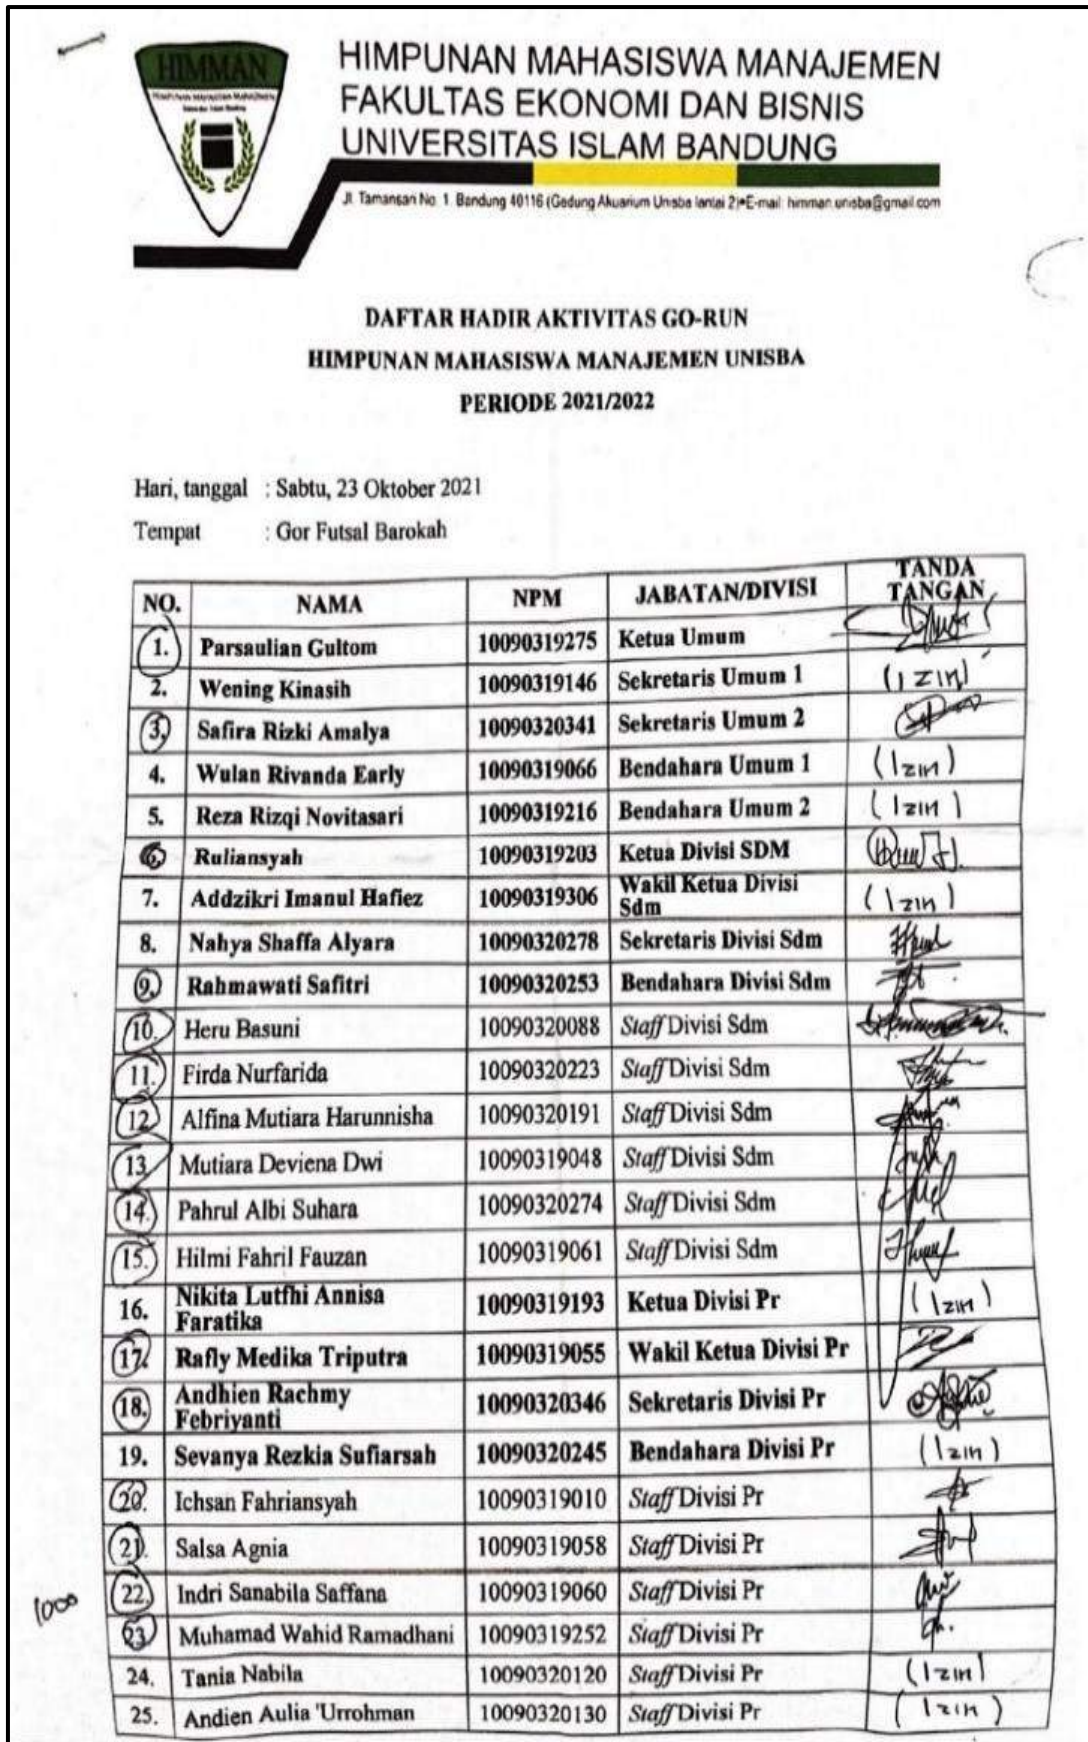 HIMMAN
HIMPUNAN MAHASISWA MANAJEMEN
HIMPUNAN MAHASISWA MANAJEMEN
FAKULTAS EKONOMI DAN BISNIS
UNIVERSITAS ISLAM BANDUNG
Jl. Tamansari No. 1. Bandung 40116 (Gedung Akuarium Unisba lantai 2)•E-mail: himman.unisba@gmail.com
DAFTAR HADIR AKTIVITAS GO-RUN
HIMPUNAN MAHASISWA MANAJEMEN UNISBA
PERIODE 2021/2022
Hari, tanggal : Sabtu, 23 Oktober 2021
Tempat : Gor Futsal Barokah
NO. NAMA NPM JABATAN/DIVISI TANDA TANGAN
1. Parsaulian Gultom 10090319275 Ketua Umum
2. Wening Kinasih 10090319146 Sekretaris Umum 1 (izin)
3. Safira Rizki Amalya 10090320341 Sekretaris Umum 2
4. Wulan Rivanda Early 10090319066 Bendahara Umum 1 (Izin)
5. Reza Rizqi Novitasari 10090319216 Bendahara Umum 2 (Izin)
6. Ruliansyah 10090319203 Ketua Divisi SDM
7. Addzikri Imanul Hafiez 10090319306 Wakil Ketua Divisi Sdm (Izin)
8. Nahya Shaffa Alyara 10090320278 Sekretaris Divisi Sdm
9. Rahmawati Safitri 10090320253 Bendahara Divisi Sdm
10. Heru Basuni 10090320088 Staff Divisi Sdm
11. Firda Nurfarida 10090320223 Staff Divisi Sdm
12. Alfina Mutiara Harunnisha 10090320191 Staff Divisi Sdm
13. Mutiara Deviena Dwi 10090319048 Staff Divisi Sdm
14. Pahrul Albi Suhara 10090320274 Staff Divisi Sdm
15. Hilmi Fahril Fauzan 10090319061 Staff Divisi Sdm
16. Nikita Lutfhi Annisa Faratika 10090319193 Ketua Divisi Pr (Izin)
17. Rafly Medika Triputra 10090319055 Wakil Ketua Divisi Pr
18. Andhien Rachmy Febriyanti 10090320346 Sekretaris Divisi Pr
19. Sevanya Rezkia Sufiarsah 10090320245 Bendahara Divisi Pr (Izin)
20. Ichsan Fahriansyah 10090319010 Staff Divisi Pr
21. Salsa Agnia 10090319058 Staff Divisi Pr
22. Indri Sanabila Saffana 10090319060 Staff Divisi Pr
1000
23. Muhamad Wahid Ramadhani 10090319252 Staff Divisi Pr
24. Tania Nabila 10090320120 Staff Divisi Pr (Izin)
25. Andien Aulia 'Urrohman 10090320130 Staff Divisi Pr (Izin)